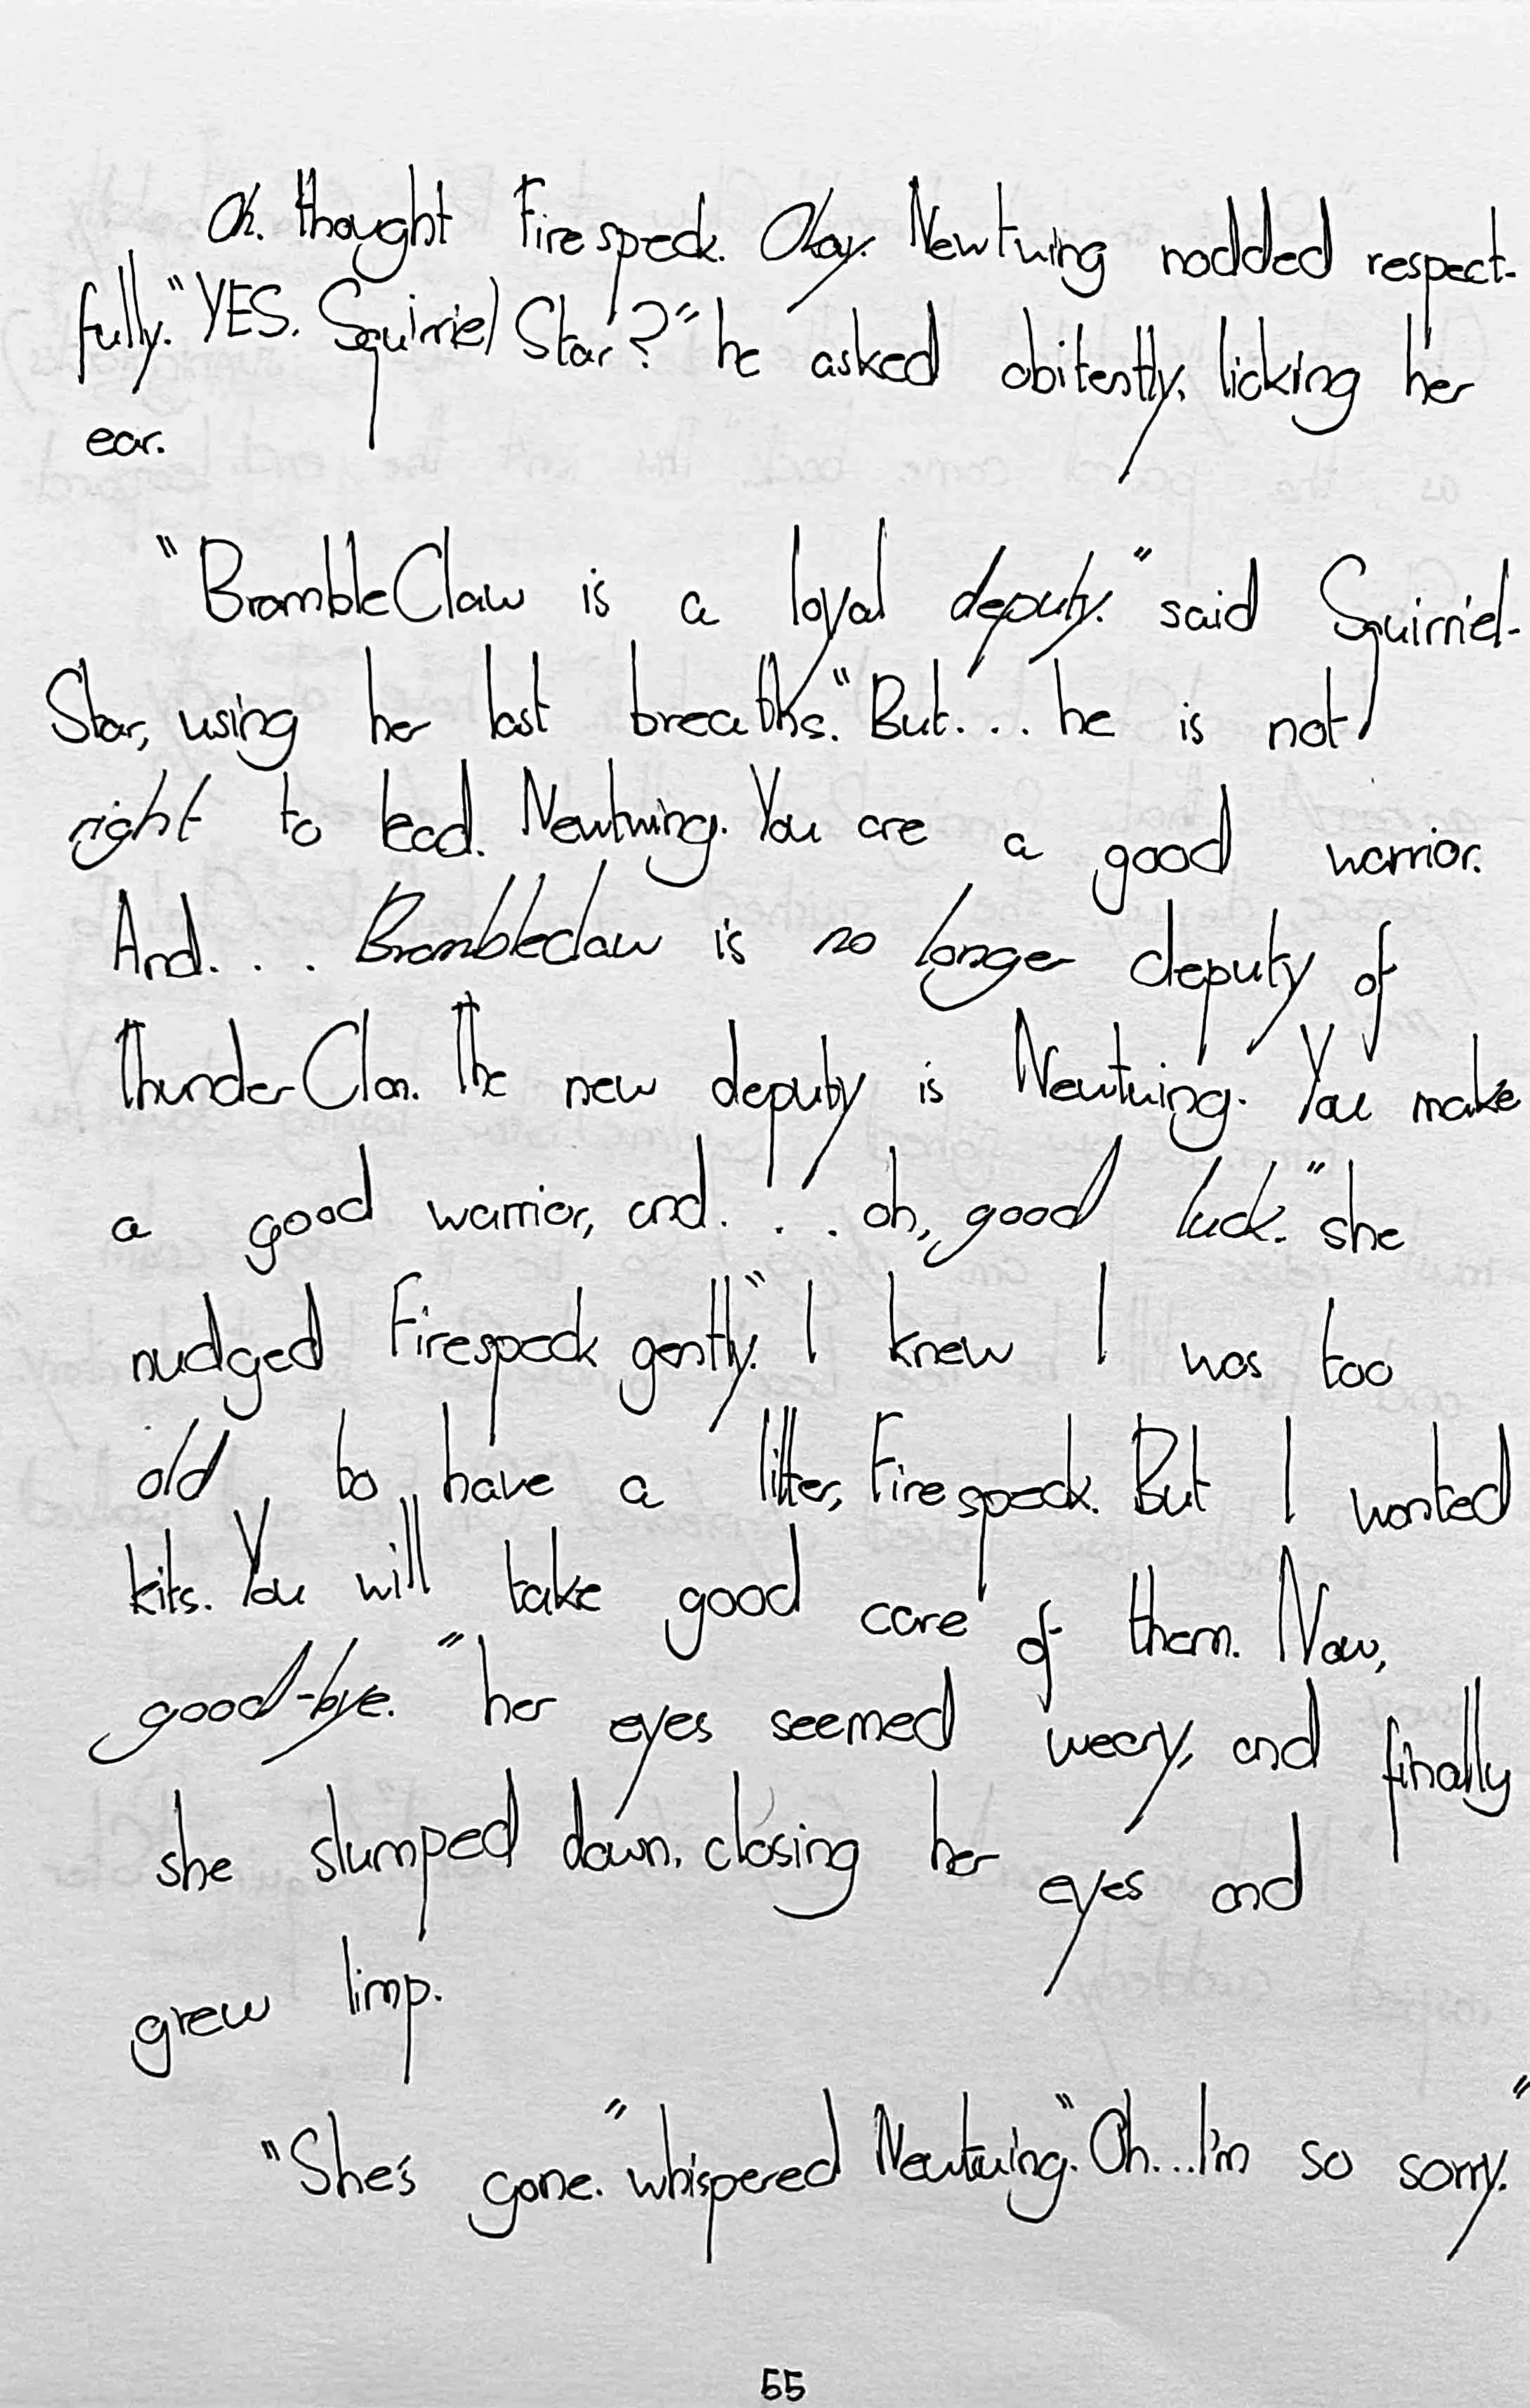 Oh. thought Firespeck. Okay. Newtwing nodded respect-
fully. "YES. Squirriel Star?" he asked obitently, licking her
ear.
"BrambleClaw is a loyal deputy." said Squirriel-
Star, using her last breaths. "But... he is not
right to lead. Newtwing. You are a good warrior.
And... Brambleclaw is no longer deputy of
ThunderClan. The new deputy is Newtwing. You make
a good warrior, and... oh, good luck." she
nudged Firespeck gently. "I knew I was too
old to have a litter, Firespeck. But I wanted
kits. You will take good care of them. Now,
good-bye." her eyes seemed weary, and finally
she slumped down, closing her eyes and
grew limp.
"She's gone." whispered Newtwing. "Oh...I'm so sorry."
55